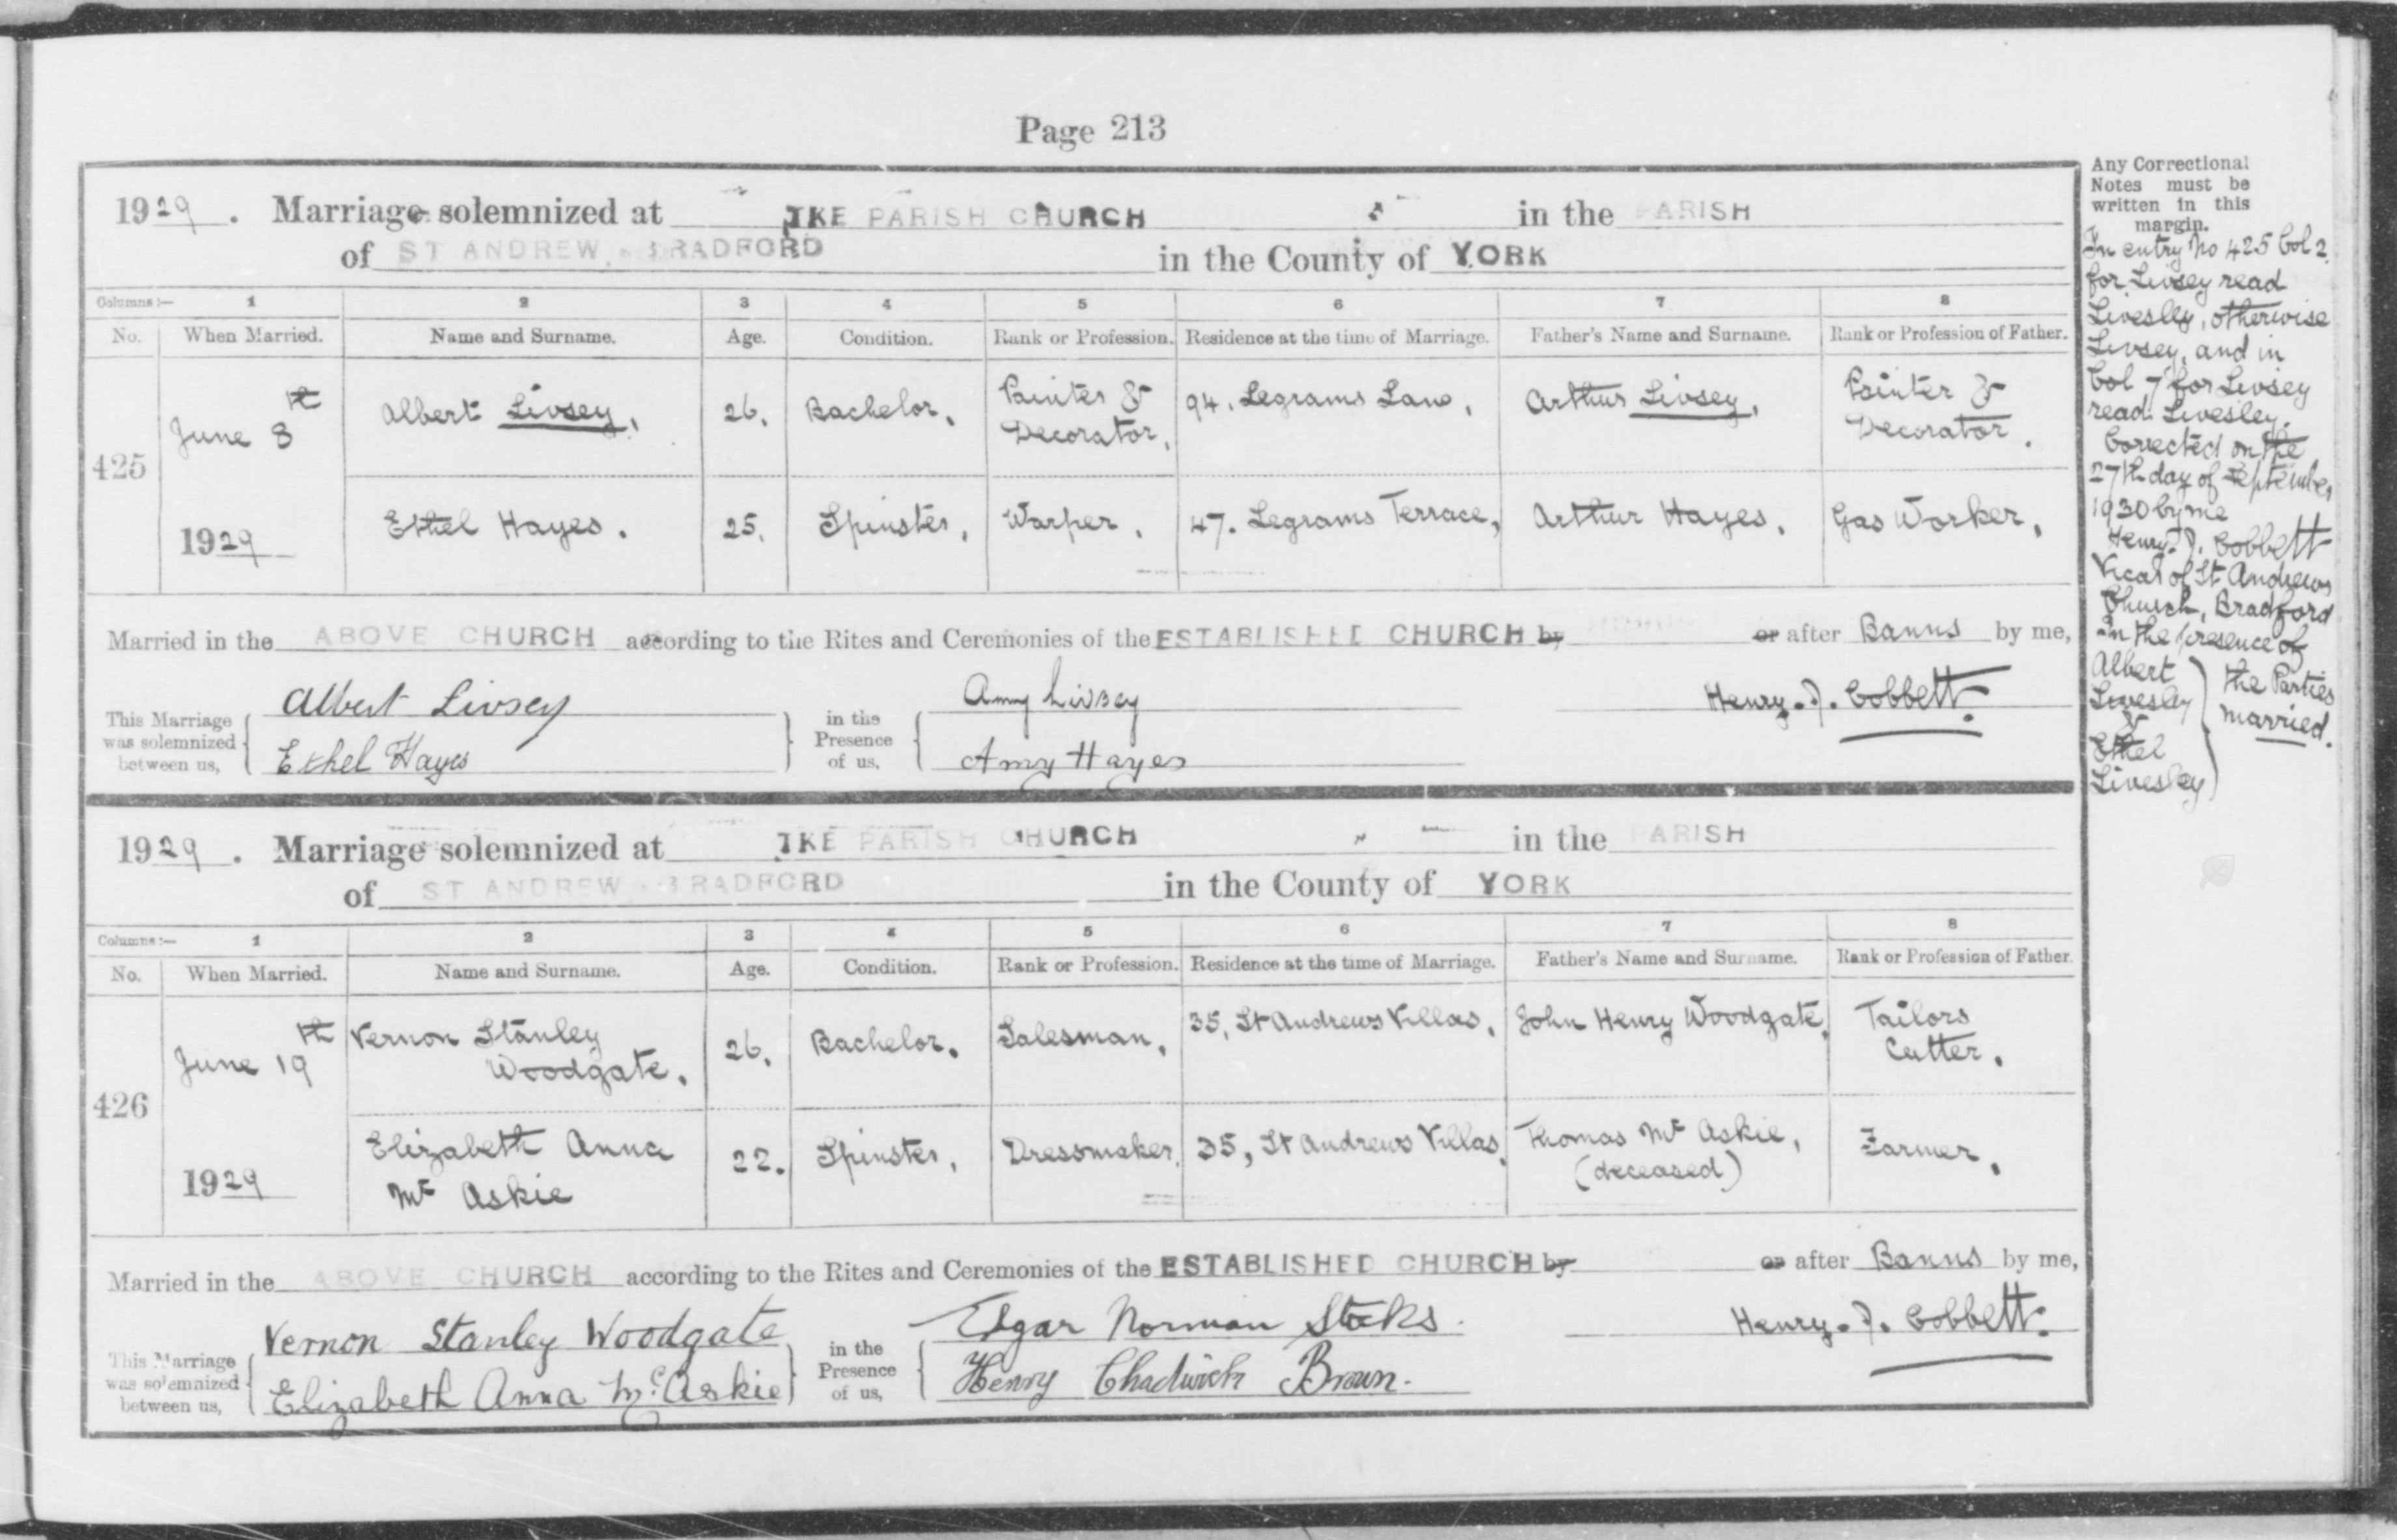 Page 213
Any Correctional
Notes must be
written in this
margin.
In entry No 425 Col 2.
for Livsey read
Livesley, otherwise
Livsey, and in
Col 7 for Livsey
read Livesley.
Corrected on the
27th day of September
1930 by me
Henry. J. Cobbett
Vicar of St Andrews
Church, Bradford
In the presence of
Albert
Livesley
&
Ethel
Livesley
the Parties
married.
1929. Marriage solemnized at THE PARISH CHURCH in the PARISH
of ST ANDREW, BRADFORD in the County of YORK
Columns:— 1 2 3 4 5 6 7 8
No. When Married. Name and Surname. Age. Condition. Rank or Profession. Residence at the time of Marriage. Father's Name and Surname. Rank or Profession of Father.
425 June 8th 1929
Albert Livsey, 26. Bachelor. Painter & Decorator, 94. Legrams Lane, Arthur Livsey, Painter & Decorator.
Ethel Hayes. 25. Spinster, Warper. 47. Legrams Terrace, Arthur Hayes, Gas Worker,
Married in the ABOVE CHURCH according to the Rites and Ceremonies of the ESTABLISHED CHURCH by or after Banns by me,
This Marriage was solemnized between us,
Albert Livsey
Ethel Hayes
in the Presence of us,
Amy Livsey
Amy Hayes
Henry. J. Cobbett.
1929. Marriage solemnized at THE PARISH CHURCH in the PARISH
of ST ANDREW, BRADFORD in the County of YORK
Columns:— 1 2 3 4 5 6 7 8
No. When Married. Name and Surname. Age. Condition. Rank or Profession. Residence at the time of Marriage. Father's Name and Surname. Rank or Profession of Father.
426 June 19th 1929
Vernon Stanley Woodgate. 26. Bachelor. Salesman, 35, St Andrews Villas, John Henry Woodgate, Tailors Cutter.
Elizabeth Anna Mc Askie 22. Spinster, Dressmaker, 35, St Andrews Villas, Thomas Mc Askie, (deceased) Farmer.
Married in the ABOVE CHURCH according to the Rites and Ceremonies of the ESTABLISHED CHURCH by or after Banns by me,
This Marriage was solemnized between us,
Vernon Stanley Woodgate
Elizabeth Anna McAskie
in the Presence of us,
Edgar Norman Stocks.
Henry Chadwick Brown.
Henry. J. Cobbett.